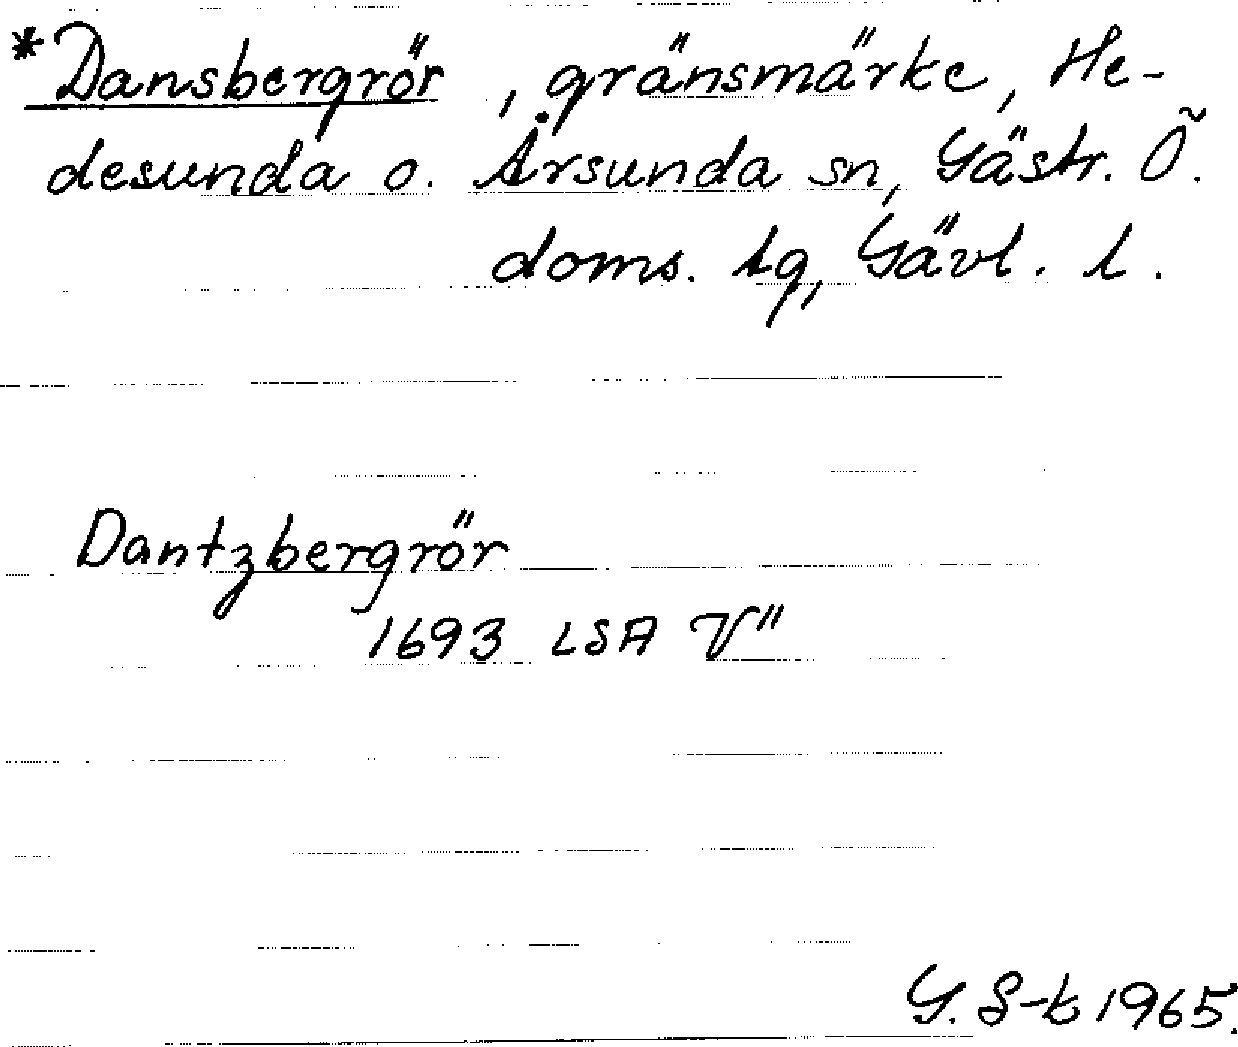 *Dansbergrör, gränsmärke, He-
desunda o. Årsunda sn, Gästr. Ö.
doms. lg, Gävl. l.
Dantzbergrör
1693 LSA V"
G. S-t 1965.